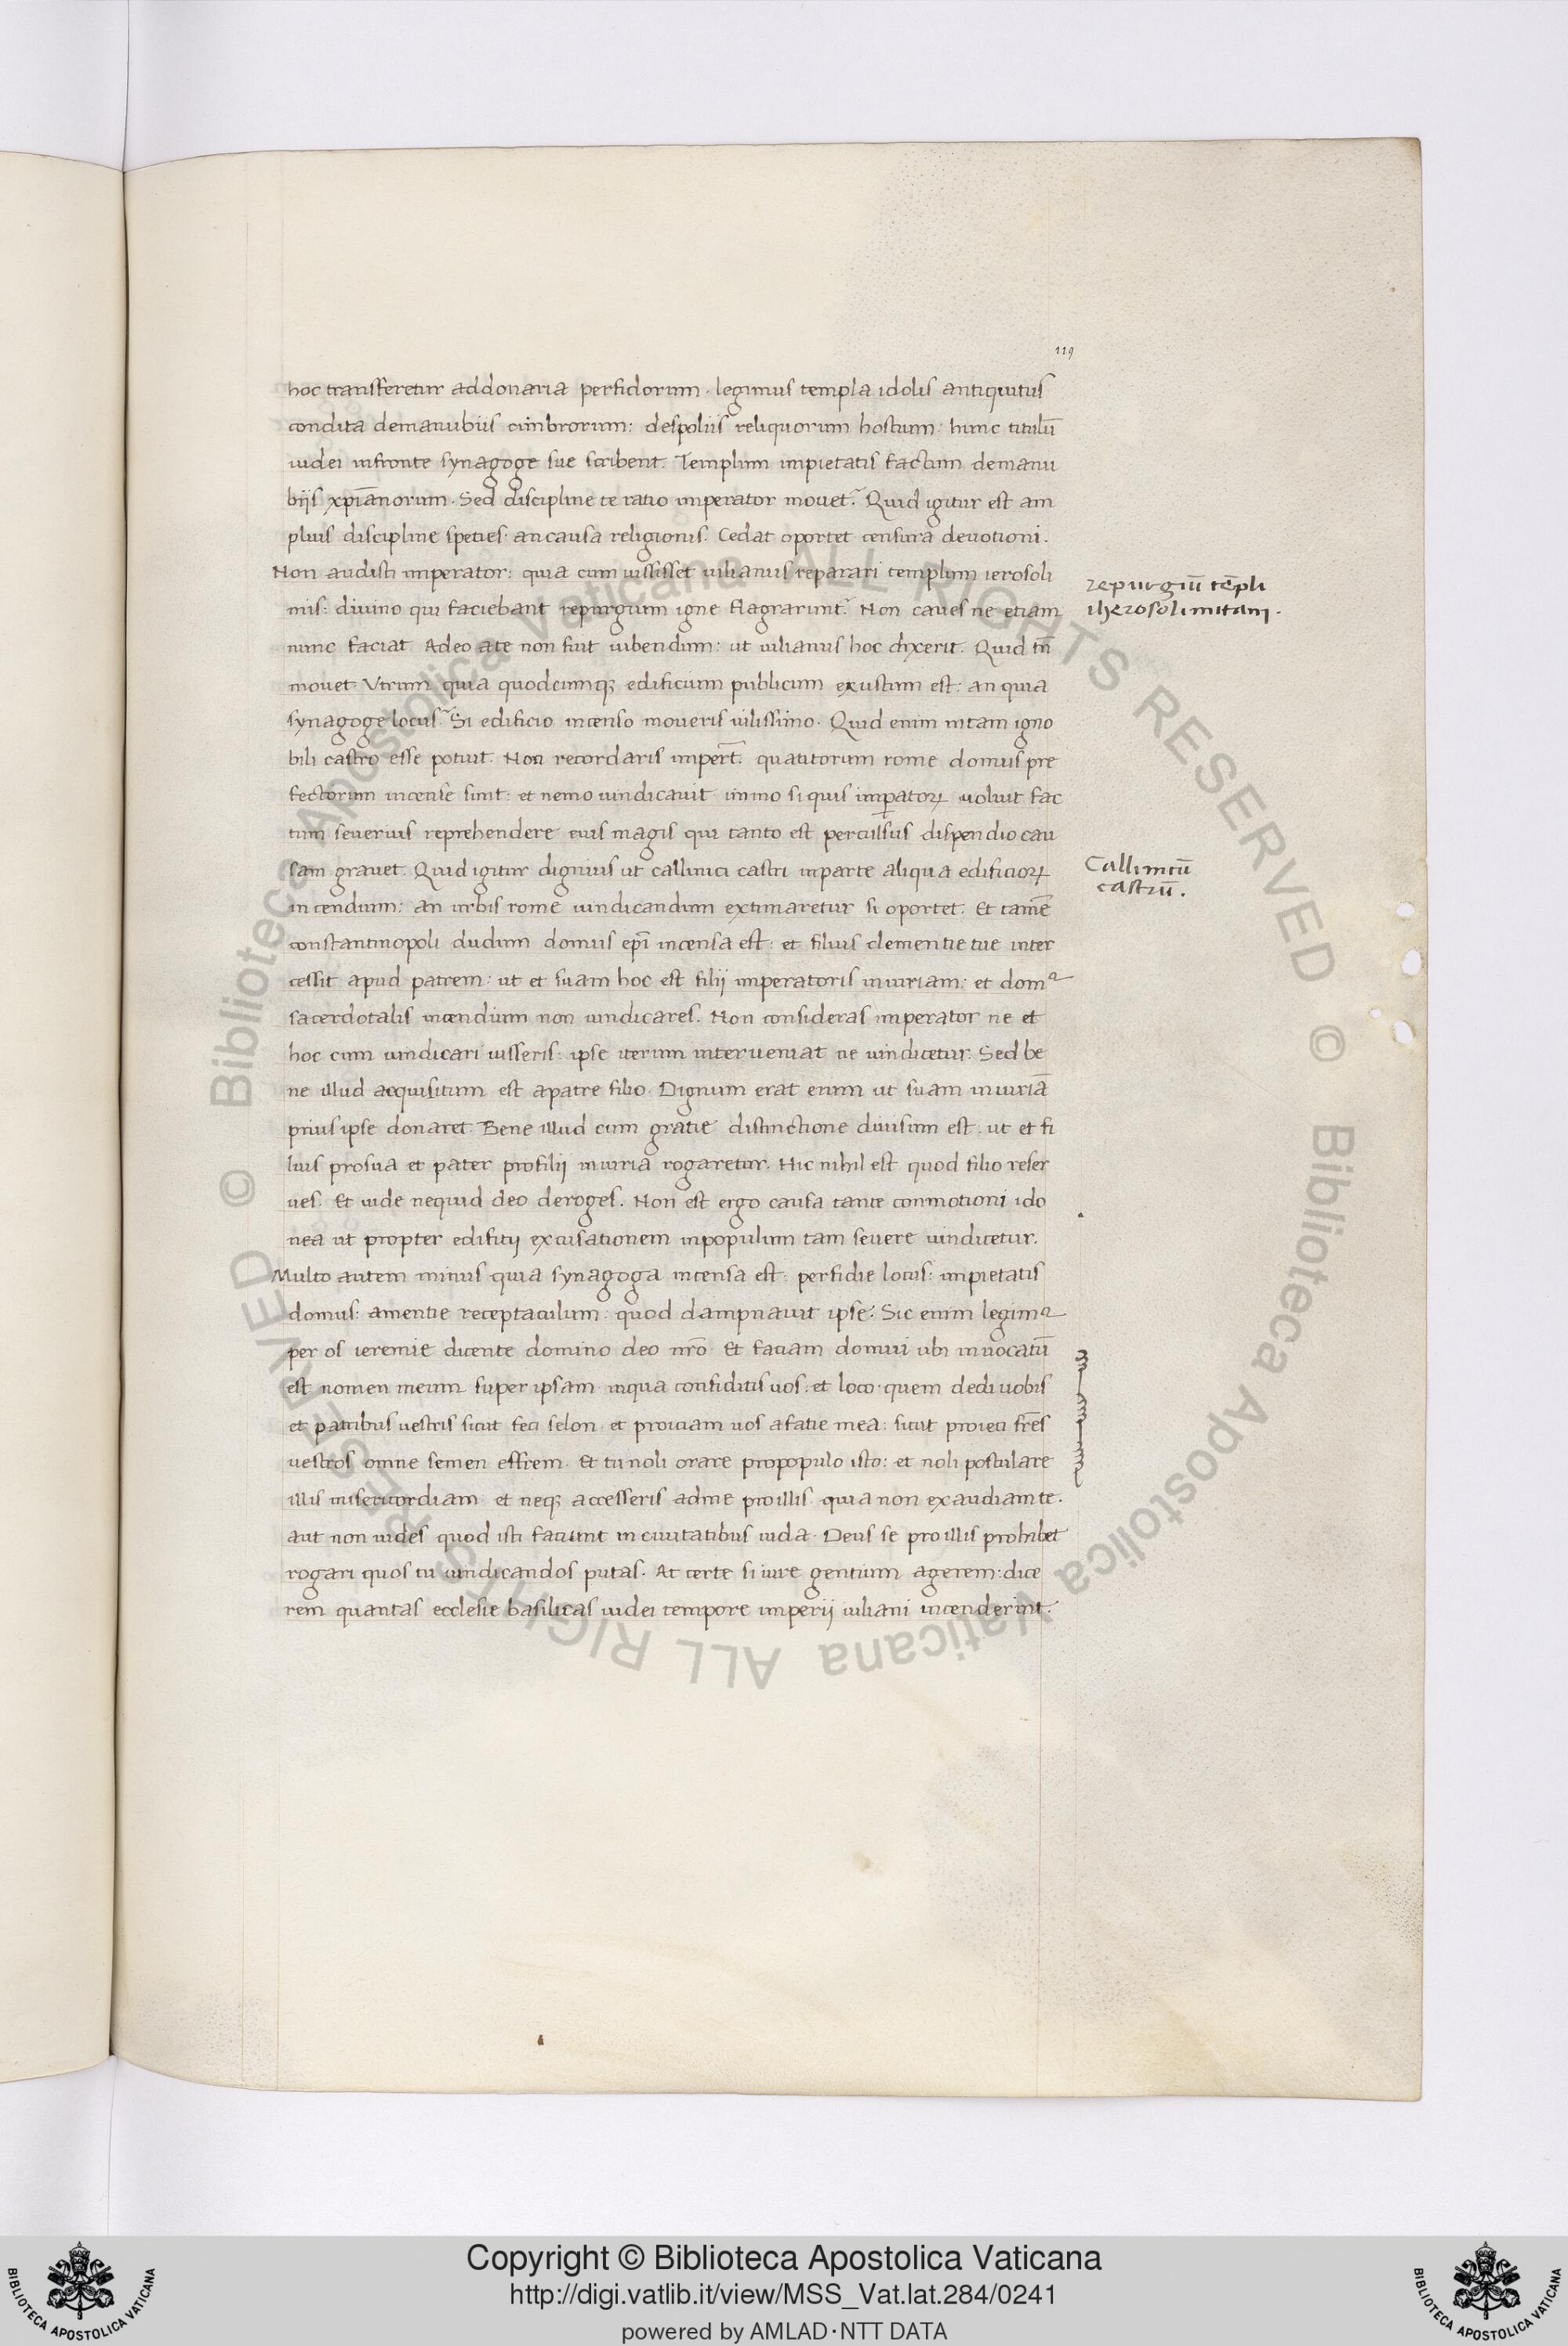 119
hoc transferetur addonaria perfidorum. legimus templa idolis antiquitus
condita demanubiis cimbrorum: despoliis reliquorum hostium: hunc titulū
iudei infronte synagoge sue scribent. Templum impietatis factum demanu
biis xp̄ianorum. Sed discipline te ratio imperator mouet? Quid igitur est am
plius discipline speties. an causa religionis. Cedat oportet censura deuotioni.
Non audisti imperator: quia cum iussisset iulianus reparari templum ierosoli
mis: diuino qui faciebant repurgium igne flagrarint? Non caues ne etiam
nunc faciat. Adeo ate non fuit iubendum: ut iulianus hoc dixerit. Quid tn̄
mouet Vtrum quia quodcumq; edificium publicum exustum est: an quia
synagoge locus? Si edificio incenso moueris uilissimo. Quid enim intam igno
bili castro esse potuit. Non recordaris impert̄. quatitorum rome domus pre
fectorum incense sint: et nemo uindicauit immo si quis imperatoꝝ uoluit fac
tum seuerius reprehendere eius magis qui tanto est perculsus dispendio cau
sam grauet. Quid igitur dignius ut callinici castri inparte aliqua edificioꝝ
incendium: an urbis rome uindicandum extimaretur si oportet. Et tamē
constantinopoli dudum domus epi̅ incensa est: et filius clementie tue inter
cessit apud patrem: ut et suam hoc est filij imperatoris iniuriam: et domꝰ
sacerdotalis incendium non uindicares. Non consideras imperator ne et
hoc cum uindicari iusseris: ipse iterum interueniat ne uindicetur. Sed be
ne illud acquisitum est apatre filio. Dignum erat enim ut suam iniuriā
prius ipse donaret. Bene illud cum gratie distinctione diuisum est. ut et fi
lius prosua et pater profilij iniuria rogaretur. Hic nihil est quod filio reser
ues. Et uide nequid deo deroges. Non est ergo causa tante conmotioni ido
nea ut propter edifitij excusationem inpopulum tam seuere uindicetur.
Multo autem minus quia synagoga incensa est: perfidie locus: impietatis
domus: amentie receptaculum: quod dampnauit ipse. Sic enim legimꝰ
per os ieremie dicente domino deo nr̄o. Et faciam domui ubi inuocatū
est nomen meum super ipsam inqua confiditis uos. et loco quem dedi uobis
et patribus uestris sicut feci selon. et proiciam uos afatie mea: sicut proieci fr̄es
uestros omne semen effrem. Et tu noli orare propopulo isto: et noli postulare
illis misericordiam. et neq; accesseris adme proillis. quia non exaudiam te.
aut non uides quod isti faciunt in ciuitatibus iuda. Deus se pro illis prohibet
rogari quos tu uindicandos putas. At certe si iure gentium agerem: dice
rem quantas ecclesie basilicas iudei tempore imperij iuliani incenderint.
repurgiū tēpli
iherosolimitani.
Callinicū
castrū.
Copyright © Biblioteca Apostolica Vaticana
http://digi.vatlib.it/view/MSS_Vat.lat.284/0241
powered by AMLAD·NTT DATA
BIBLIOTECA APOSTOLICA VATICANA
BIBLIOTECA APOSTOLICA VATICANA
© Biblioteca Apostolica Vaticana ALL RIGHTS RESERVED © Biblioteca Apostolica Vaticana ALL RIGHTS RESERVED